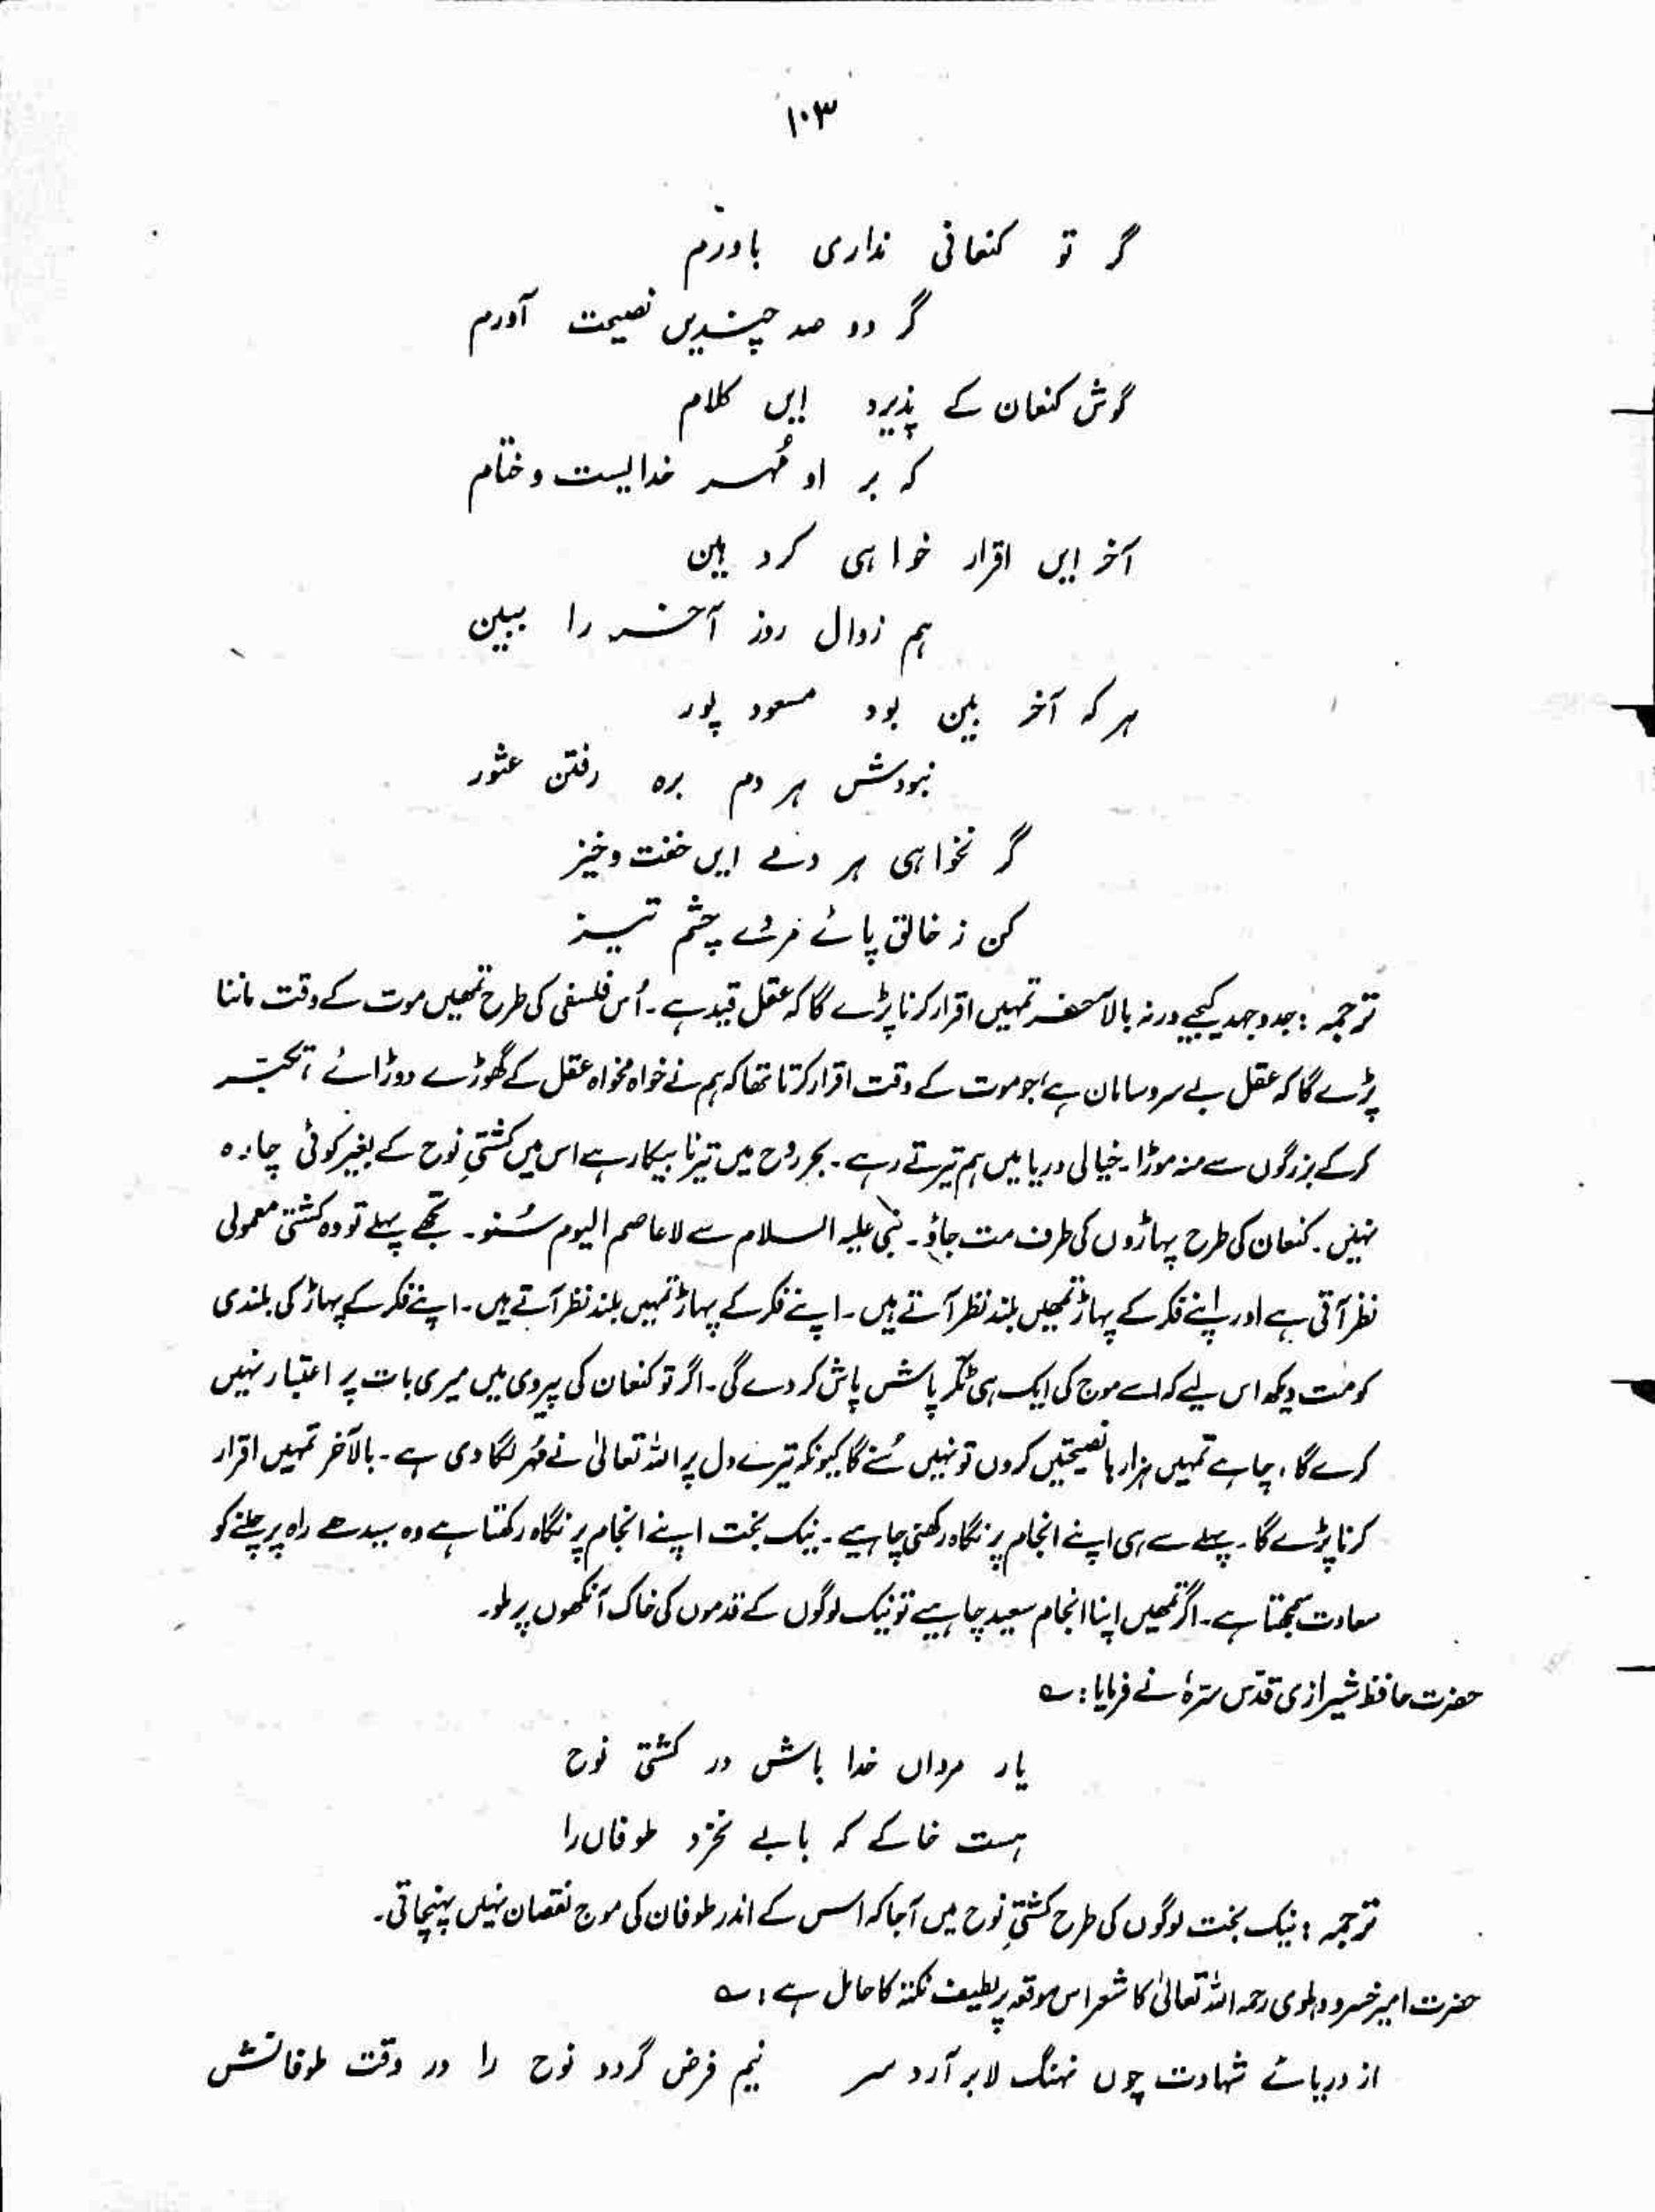 ۱۰۳
گر تو کنعانی نداری باورم
گر دو صد چندیں نصیحت آورم
گوش کنعان کے پذیرد ایں کلام
کہ بر او مُہر خدایست و ختام
آخر ایں اقرار خواہی کرد ہین
ہم زوال روز آخر را ببین
ہر کہ آخر بین بود مسعود پور
نبودش ہر دم برہ رفتن عثور
گر نخواہی ہر دمے ایں خفت و خیز
کن ز خالق پائے مردے چشم تیز
ترجمہ : جدوجہد کیجیے ورنہ بالآخر تمہیں اقرار کرنا پڑے گا کہ عقل قید ہے۔ اُس فلسفی کی طرح تمھیں موت کے وقت ماننا
پڑے گا کہ عقل بے سروسامان ہے جو موت کے وقت اقرار کرتا تھا کہ ہم نے خواہ مخواہ عقل کے گھوڑے دوڑائے، تکبّر
کرکے بزرگوں سے منہ موڑا۔ خیالی دریا میں ہم تیرتے رہے۔ بحر روح میں تیرنا بیکار ہے اس میں کشتیِ نوح کے بغیر کوئی چارہ
نہیں۔ کنعان کی طرح پہاڑوں کی طرف مت جاؤ۔ نبی علیہ السلام سے لا عاصم الیوم سُنو۔ تجھے پہلے تو وہ کشتی معمولی
نظر آتی ہے اور اپنے فکر کے پہاڑ تمھیں بلند نظر آتے ہیں۔ اپنے فکر کے پہاڑ تمہیں بلند نظر آتے ہیں۔ اپنے فکر کے پہاڑ کی بلندی
کو مت دیکھ اس لیے کہ اسے موج کی ایک ہی ٹکّر پاش پاش کر دے گی۔ اگر تو کنعان کی پیروی میں میری بات پر اعتبار نہیں
کرے گا، چاہے تمہیں ہزارہا نصیحتیں کروں تو نہیں سُنے گا کیونکہ تیرے دل پر اللہ تعالیٰ نے مُہر لگا دی ہے۔ بالآخر تمہیں اقرار
کرنا پڑے گا۔ پہلے سے ہی اپنے انجام پر نگاہ رکھنی چاہیے۔ نیک بخت اپنے انجام پر نگاہ رکھتا ہے وہ سیدھے راہ پر چلنے کو
سعادت سمجھتا ہے۔ اگر تمھیں اپنا انجام سعید چاہیے تو نیک لوگوں کے قدموں کی خاک آنکھوں پر ملو۔
حضرت حافظ شیرازی قدّس سرّہٗ نے فرمایا : ؎
یار مرداں خدا باش در کشتی نوح
ہست خاکے کہ بابے نخزد طوفاں را
ترجمہ : نیک بخت لوگوں کی طرح کشتیِ نوح میں آجا کہ اس کے اندر طوفان کی موج نقصان نہیں پہنچاتی۔
حضرت امیر خسرو دہلوی رحمہ اللہ تعالیٰ کا شعر اس موقعہ پر لطیف نکتہ کا حامل ہے : ؎
از دریائے شہادت چوں نہنگ لا بر آرد سر نیم فرض گردد نوح را در وقت طوفانش